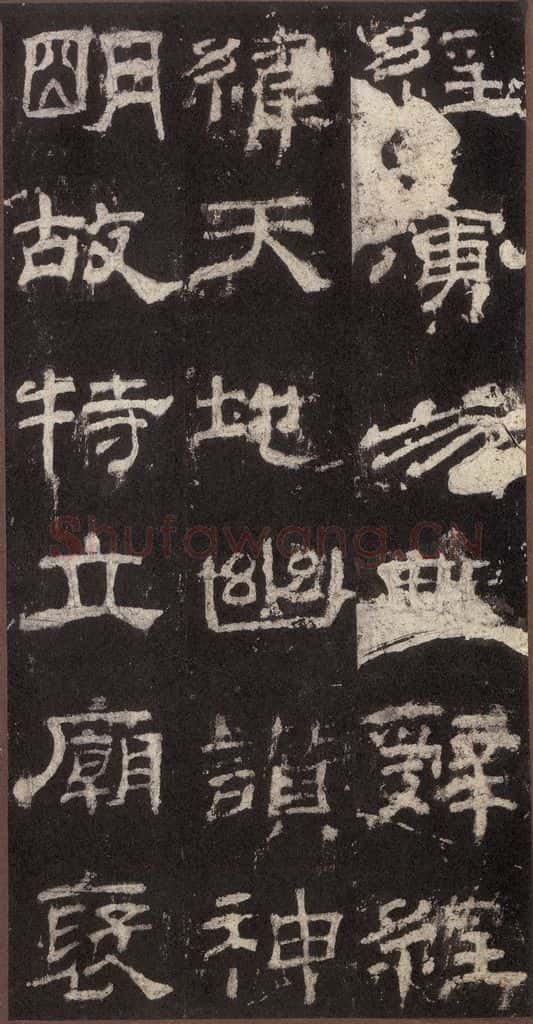 經演易辭經
緯天地幽讚神
明故特立廟褒
Shufawang.CN